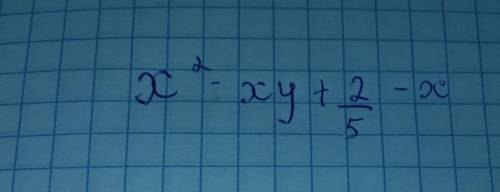 x² - xy + 2/5 - x